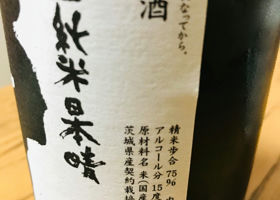 酒
なってから。
純米日本晴
精米歩合 75%
アルコール分 15度
原材料名 米(国産
茨城県産契約栽培